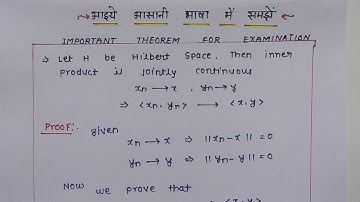 → आइये आसानी भाषा में समझें ←
IMPORTANT THEOREM FOR EXAMINATION
→ Let H be Hilbert Space, Then inner
product is jointly continuous
xₙ → x , yₙ → y
⇒ <xₙ, yₙ> → <x, y>
Proof:- given
xₙ → x ⇒ ||xₙ - x|| = 0
yₙ → y ⇒ ||yₙ - y|| = 0
Now we prove that